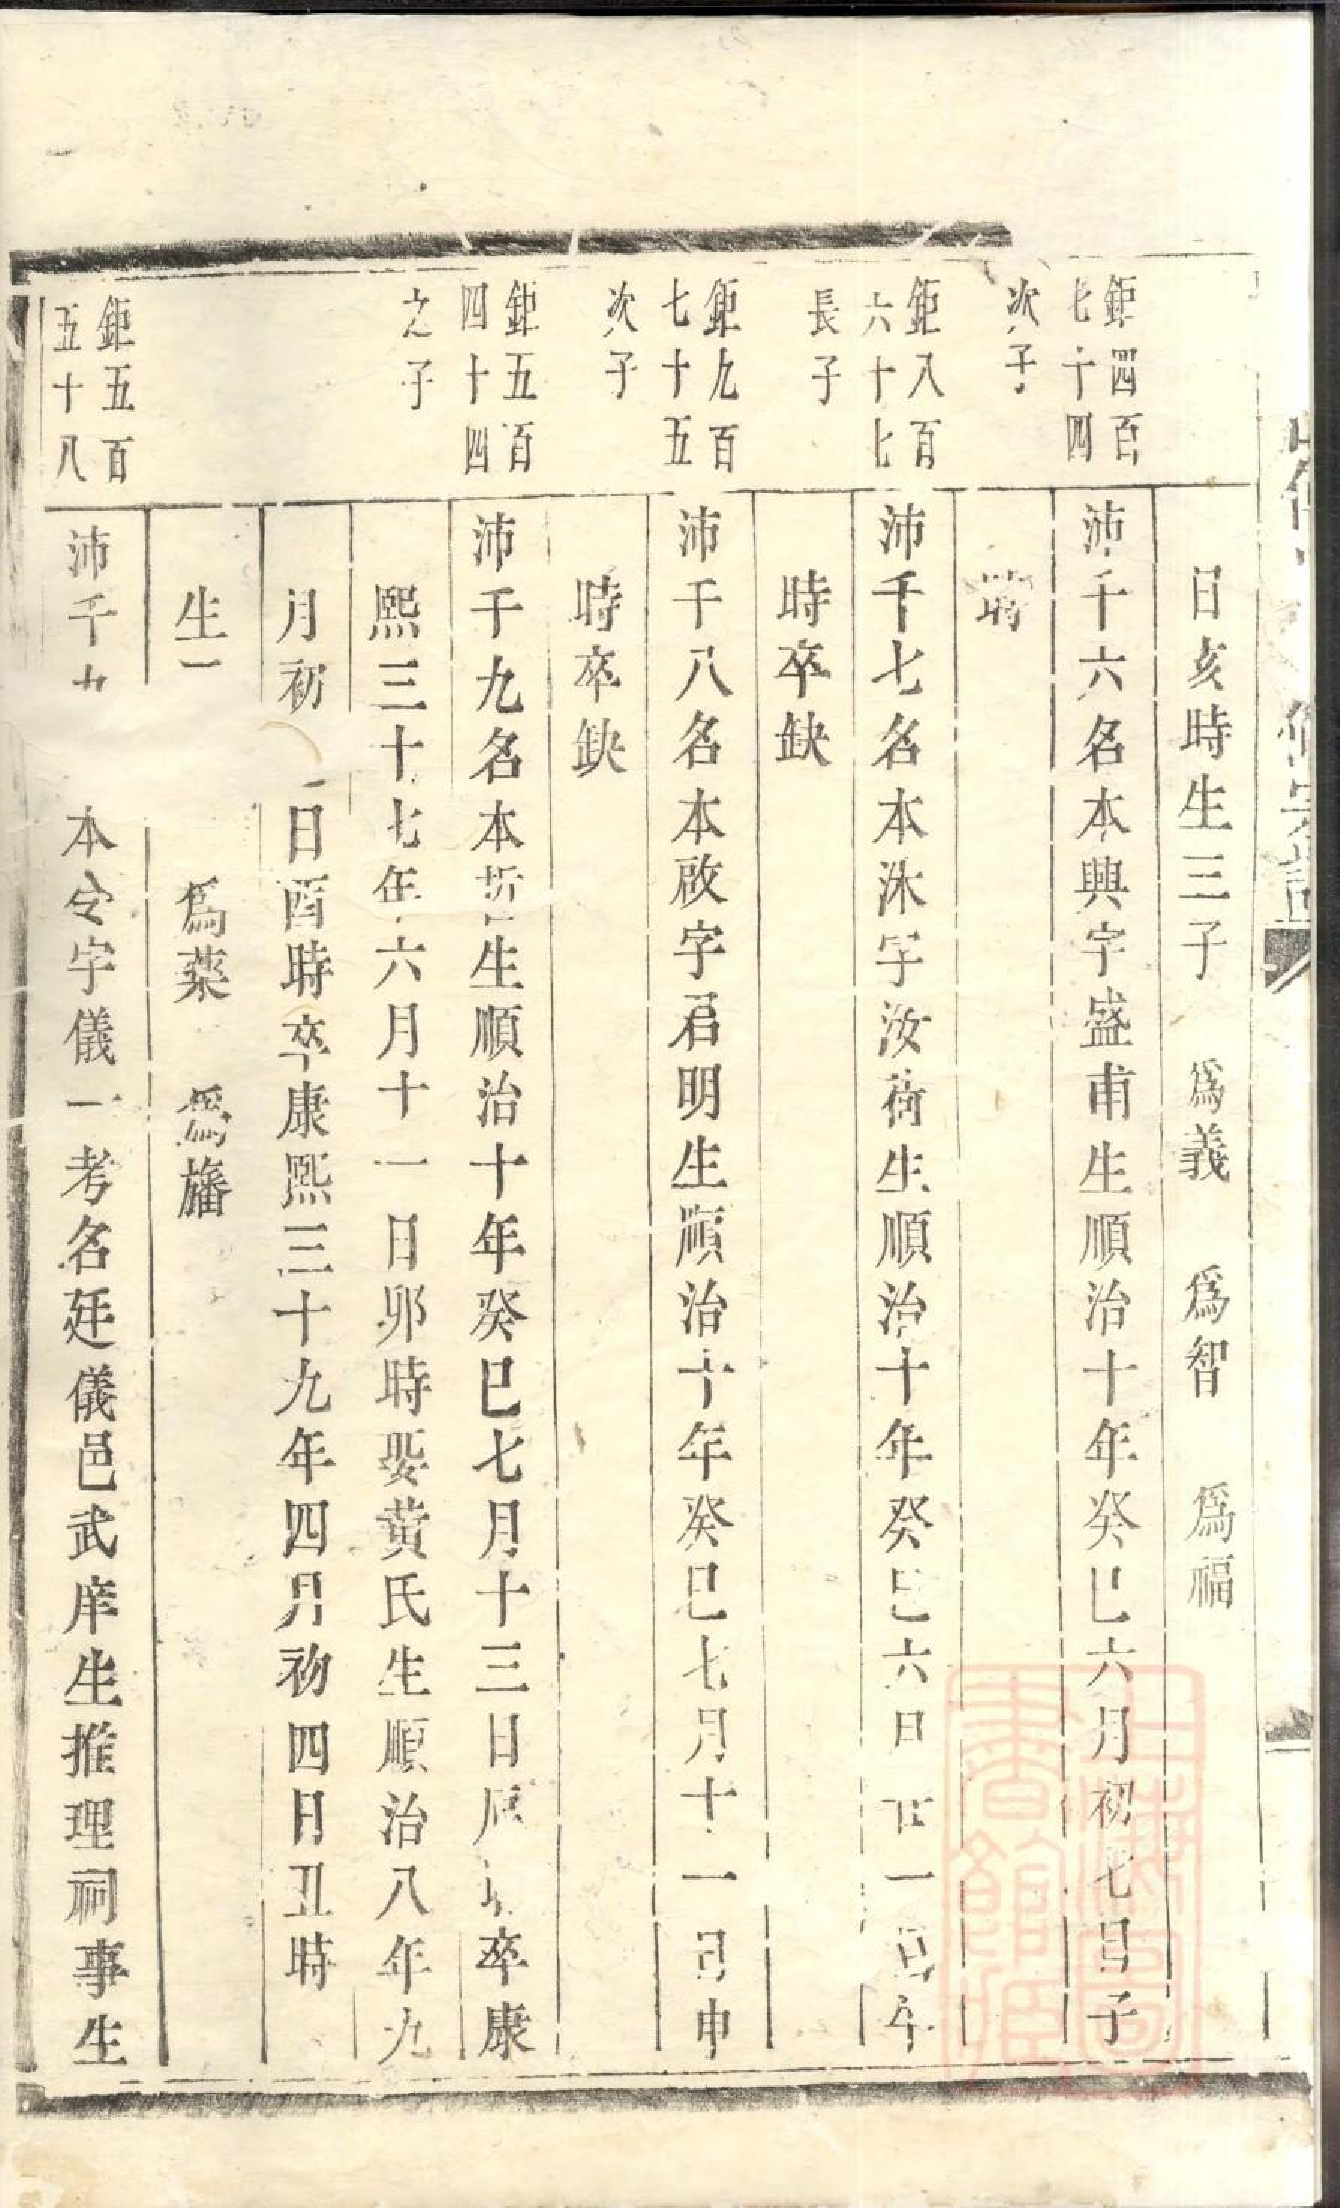 日亥時生三子　為義　為智　為福
鉅四百
七十四
次子
沛千六名本興字盛甫生順治十年癸巳六月初七日子
時
鉅八百
六十七
長子
沛千七名本沐字汝荷生順治十年癸巳六月廿一日午
時卒缺
鉅九百
七十五
次子
沛千八名本啟字君明生順治十年癸巳七月十一日申
時卒缺
鉅五百
四十四
之子
沛千九名本哲生順治十年癸巳七月十三日辰時卒康
熙三十七年六月十一日卯時娶黃氏生順治八年九
月初 日酉時卒康熙三十九年四月初四日丑時
生 　為葉　為旛
鉅五百
五十八
沛千九 本令字儀一考名廷儀邑武庠生推理祠事生